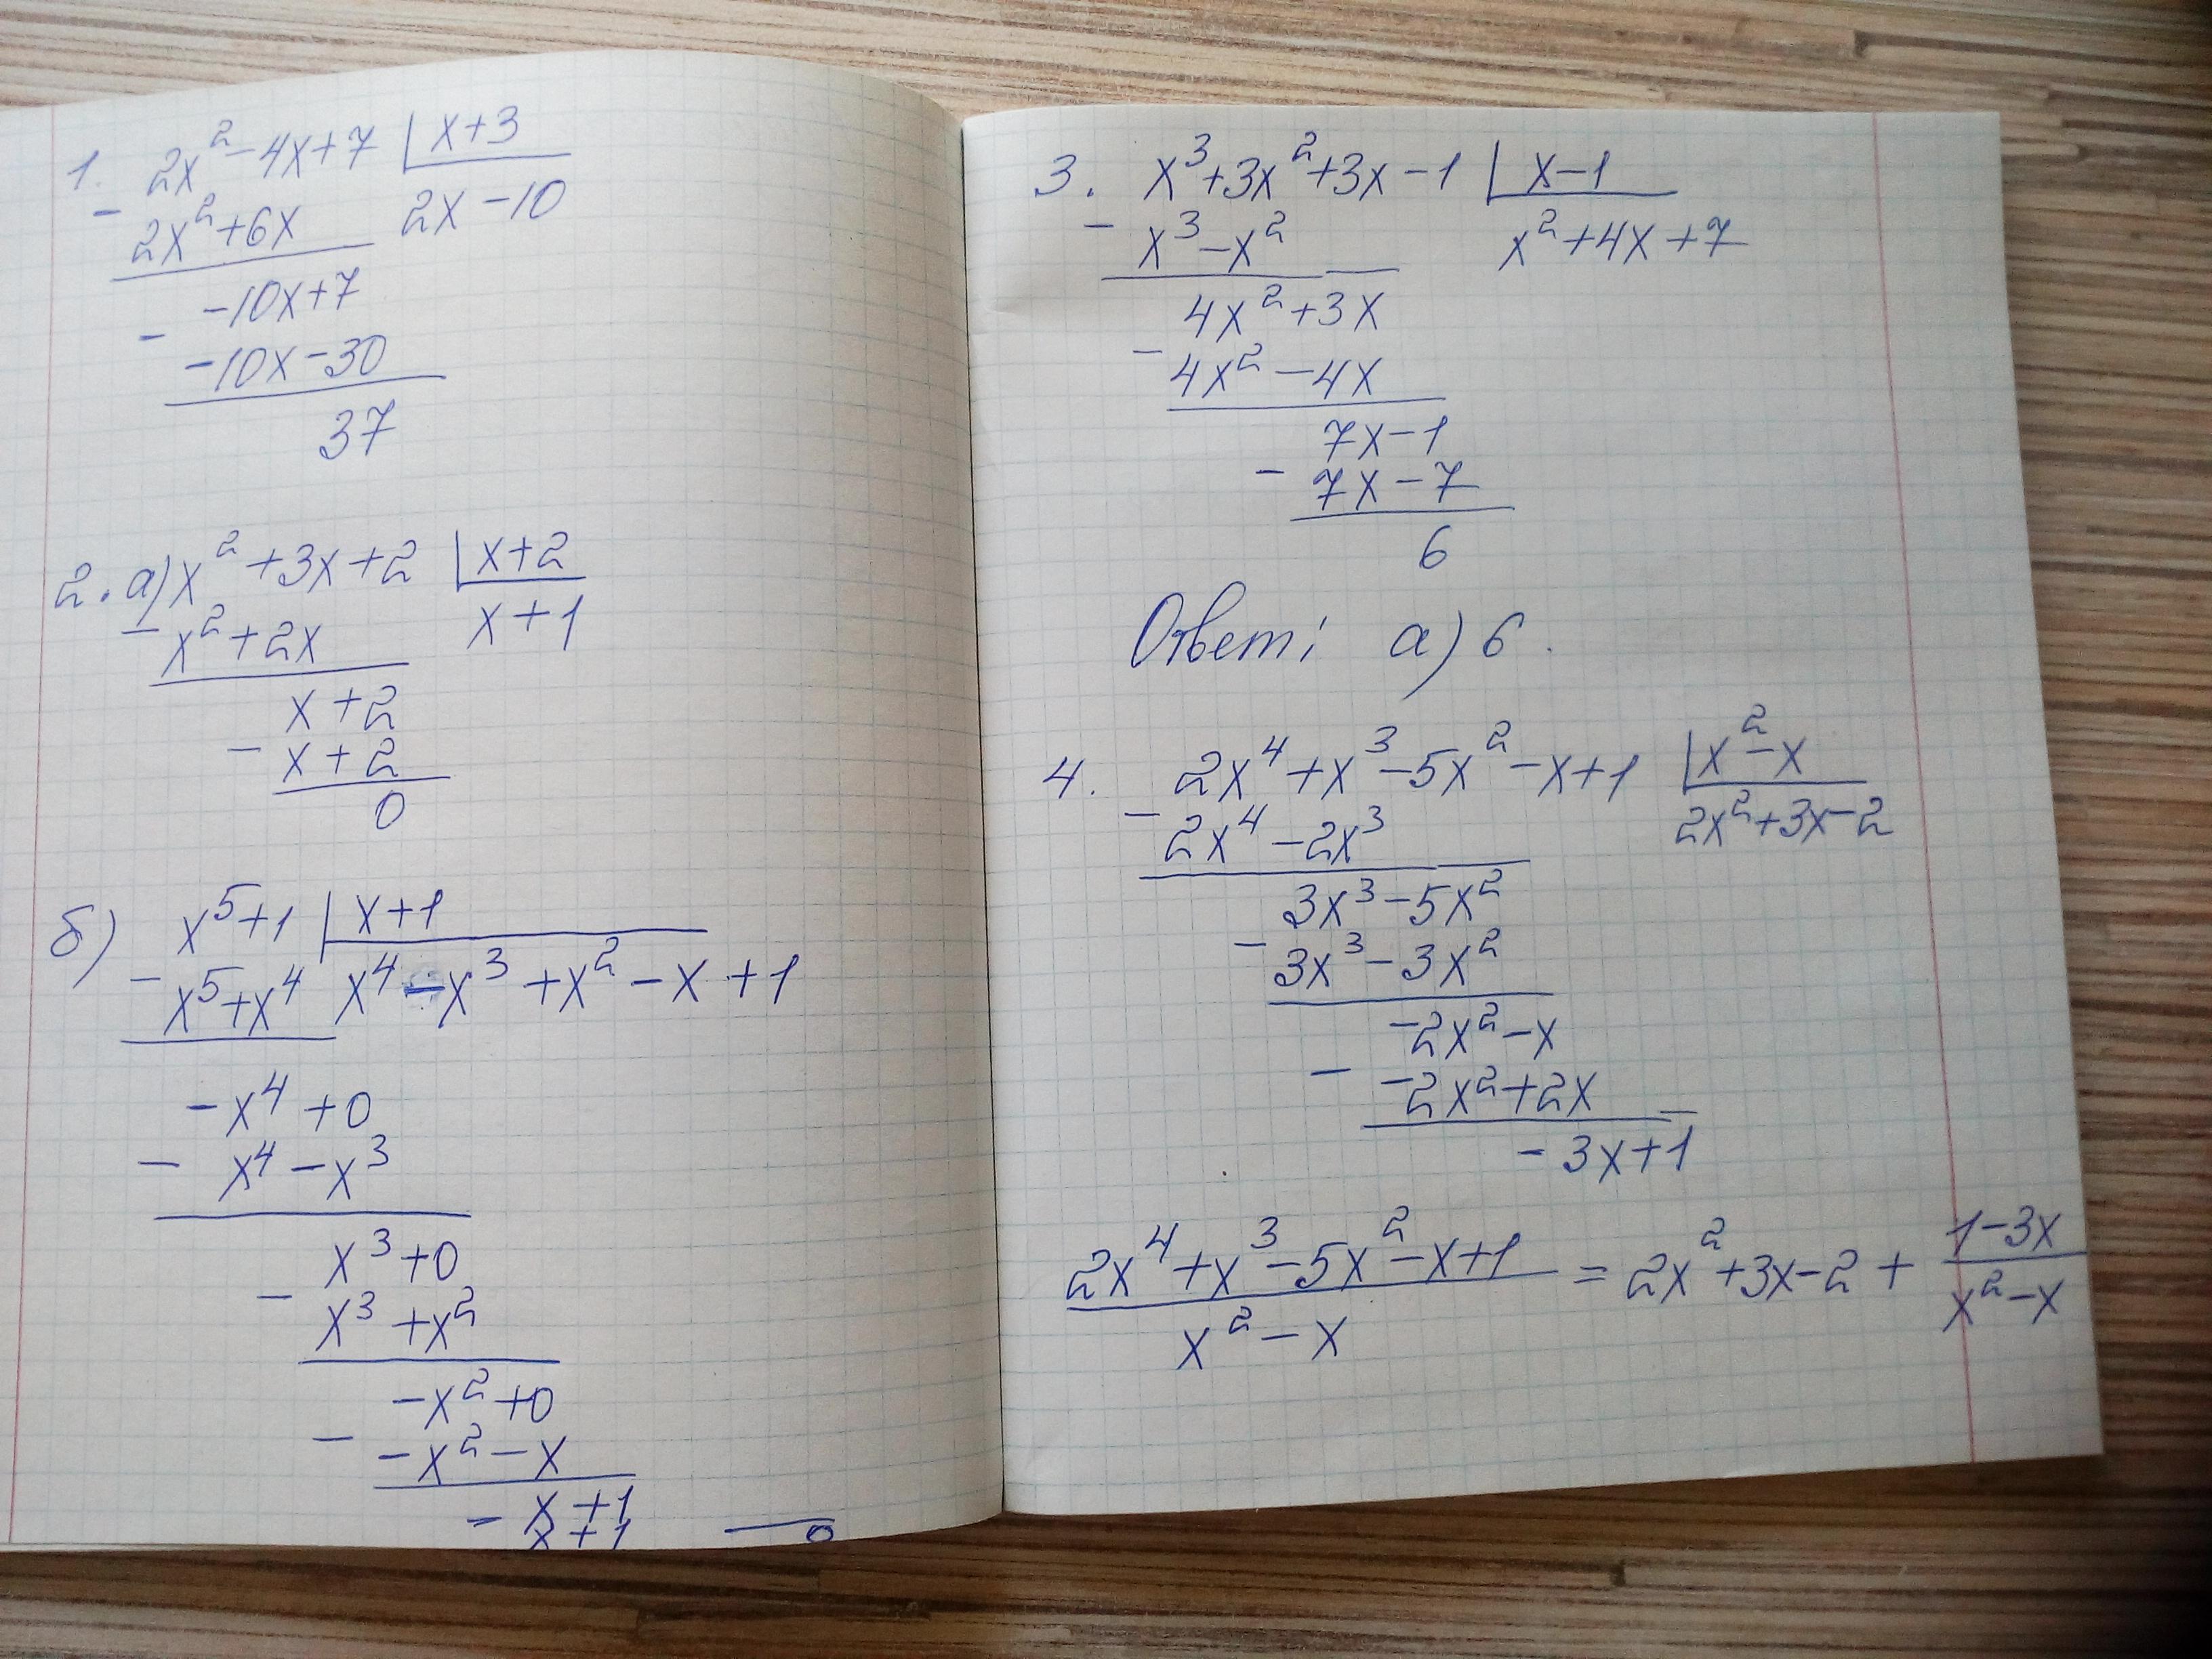 1. 2x²-4x+7 | x+3
- 2x²+6x 2x-10
-10x+7
- -10x-30
37
2. а) x²+3x+2 | x+2
- x²+2x x+1
x+2
- x+2
0
б) x⁵+1 | x+1
- x⁵+x⁴ x⁴-x³+x²-x+1
-x⁴+0
- x⁴-x³
x³+0
- x³+x²
-x²+0
- -x²-x
- x+1
x+1 0
3. x³+3x²+3x-1 | x-1
- x³-x² x²+4x+7
4x²+3x
- 4x²-4x
7x-1
- 7x-7
6
Ответ: а) 6.
4. 2x⁴+x³-5x²-x+1 | x²-x
- 2x⁴-2x³ 2x²+3x-2
3x³-5x²
- 3x³-3x²
-2x²-x
- -2x²+2x
-3x+1
2x⁴+x³-5x²-x+1 = 2x²+3x-2 + 1-3x
x²-x x²-x